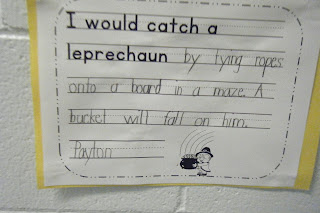 I would catch a
leprechaun by tying ropes
onto a board in a maze. A
bucket will fall on him.
Payton